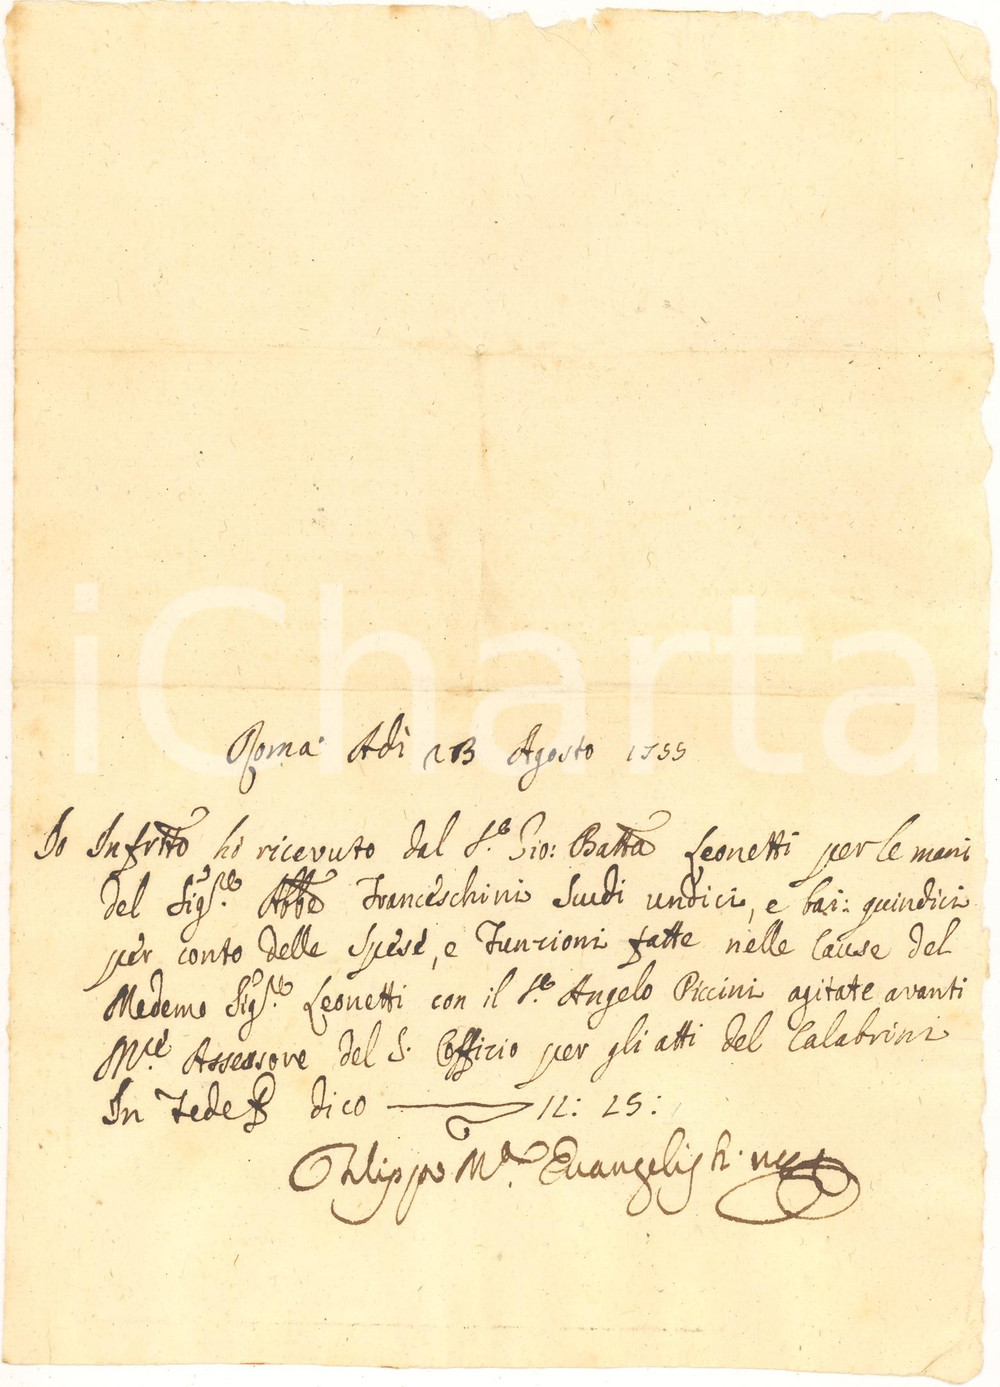 iCharta
Roma Adì 23 Agosto 1755
Io Infrtto hò ricevuto dal S.r Gio: Batta Leonetti per le mani
del Sig.re Abbe Franceschini Scudi undici, e bai: quindici
per conto delle Spese, e Funzioni fatte nelle Cause del
Medemo Sig.re Leonetti con il S.r Angelo Piccini agitate avanti
M.re Assessore del S. Officio per gli atti del Calabrini
In Fede dico 11: 15:
Filippo M.a Evangelisti